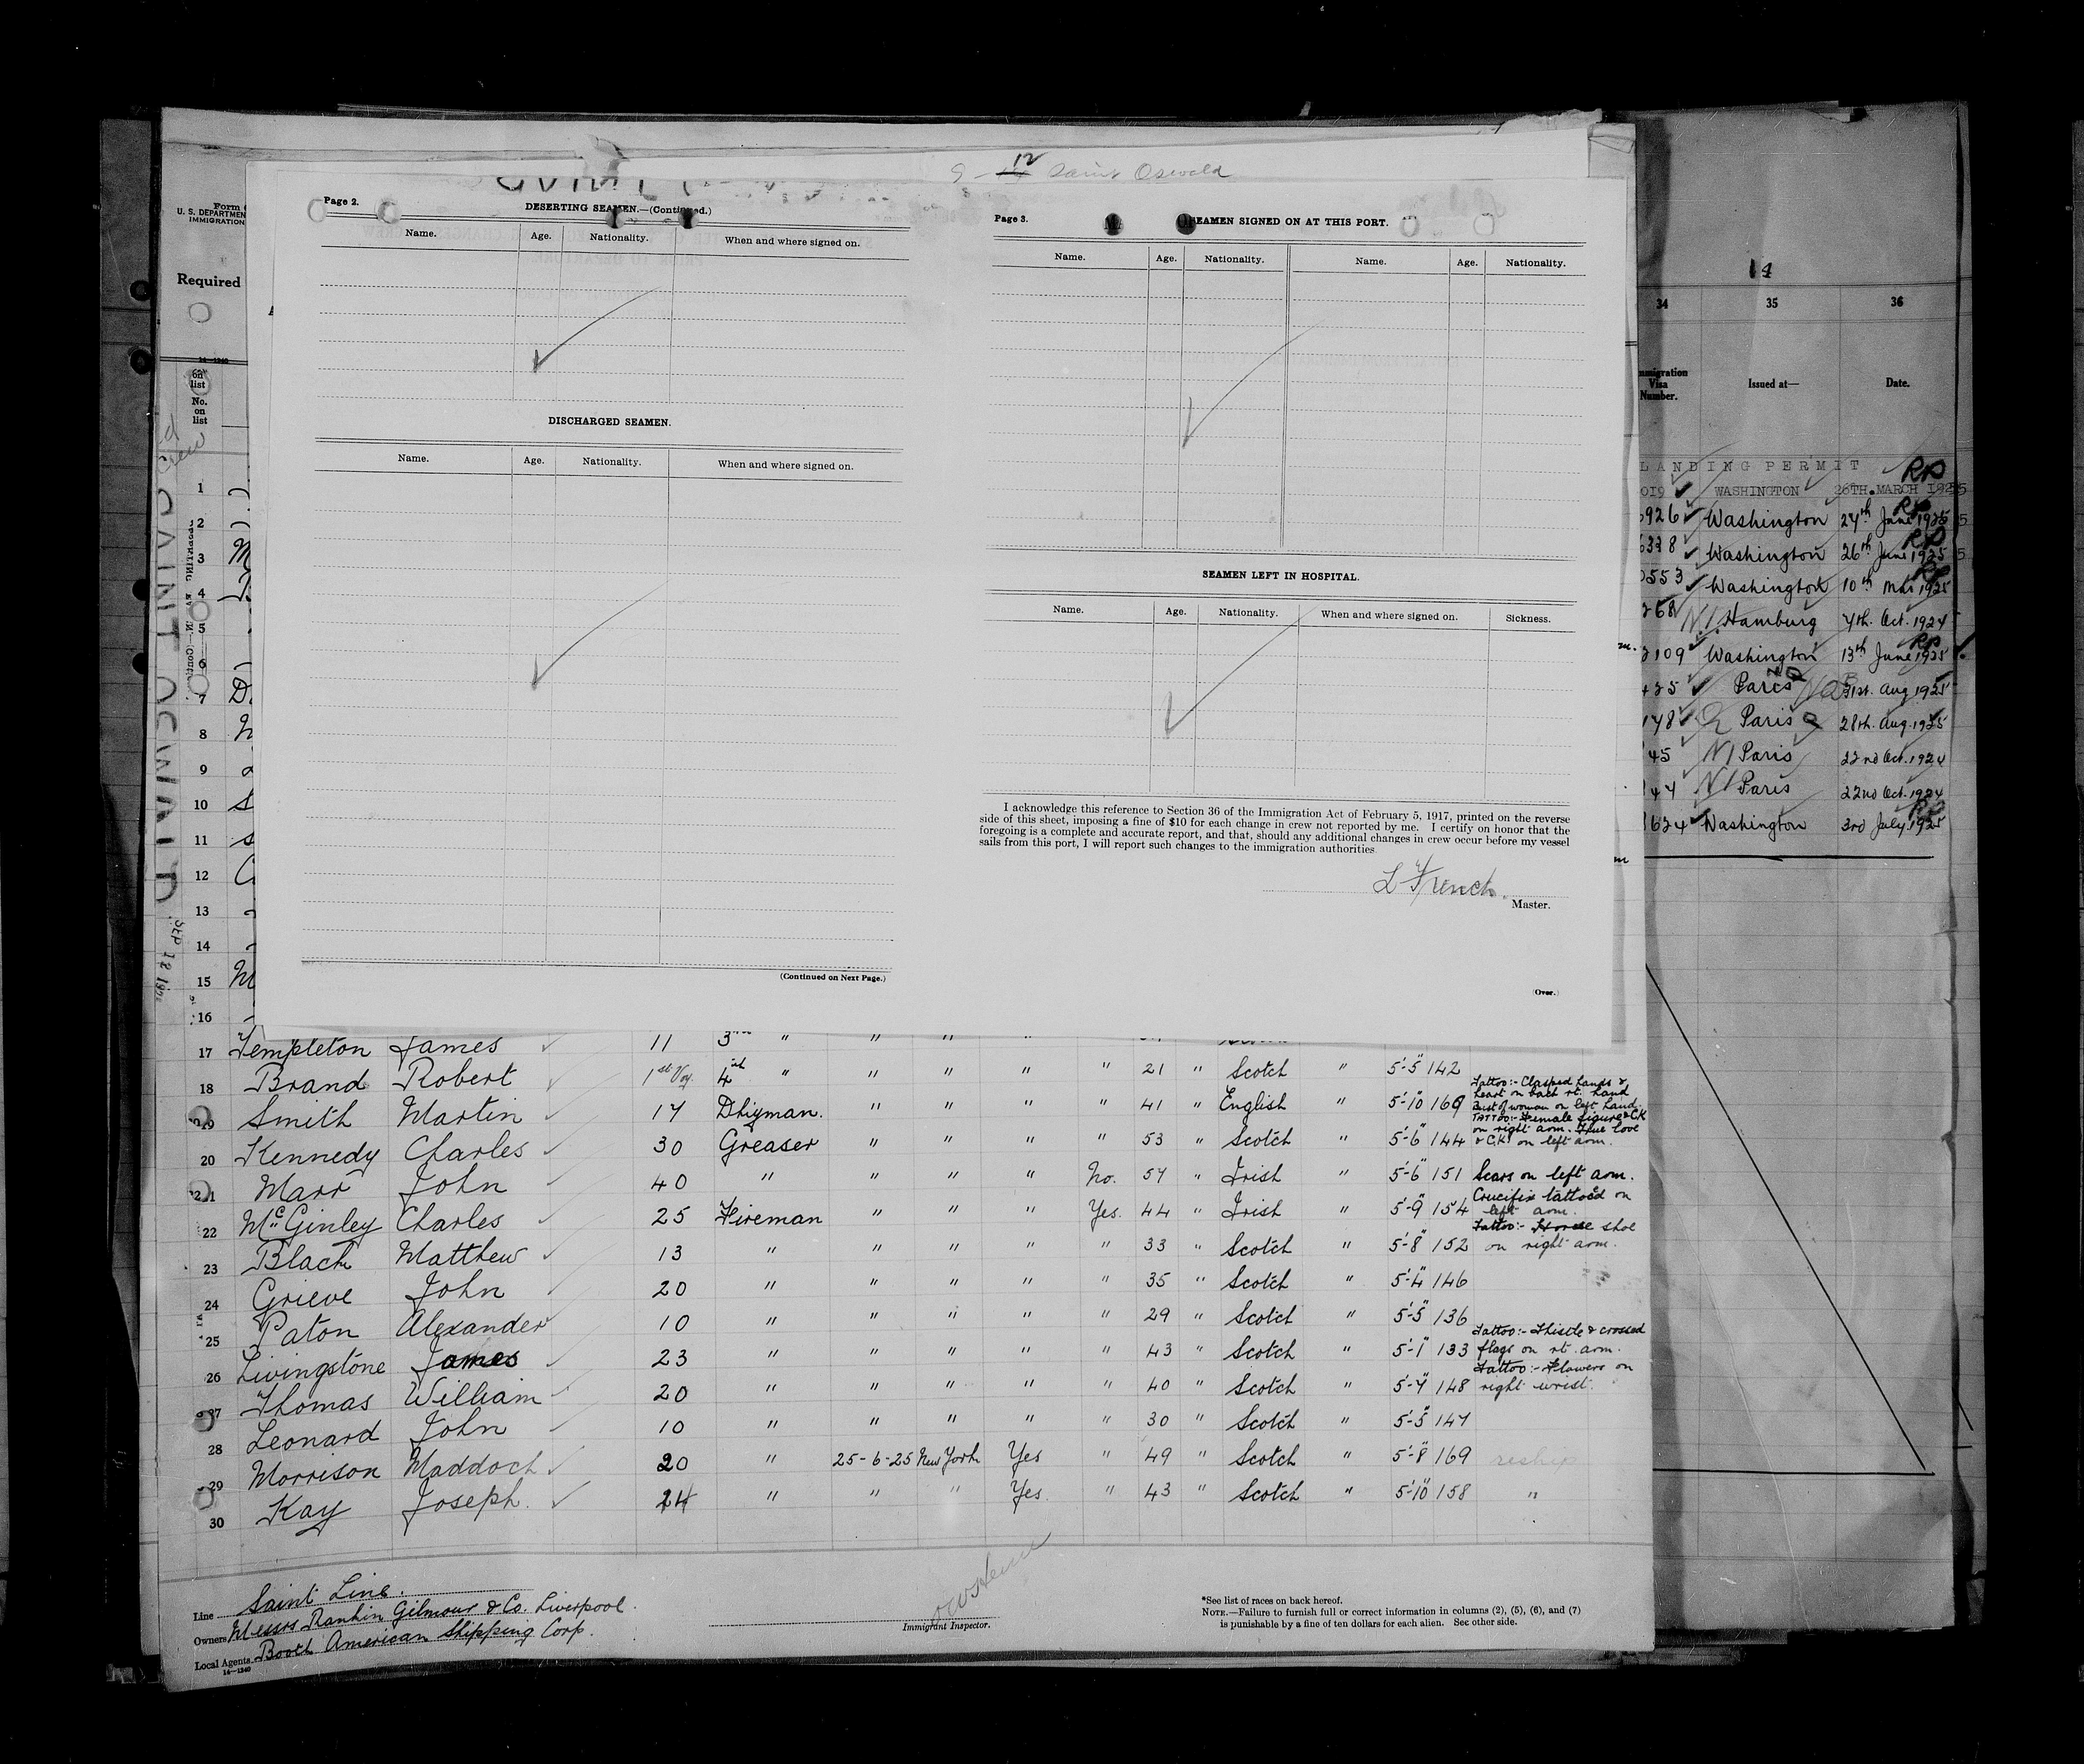 12
Saint Oswald
Page 2.
DESERTING SEAMEN.—(Continued.)
Name. Age. Nationality. When and where signed on.
DISCHARGED SEAMEN.
Name. Age. Nationality. When and where signed on.
(Continued on Next Page.)
Page 3.
SEAMEN SIGNED ON AT THIS PORT.
Name. Age. Nationality. Name. Age. Nationality.
SEAMEN LEFT IN HOSPITAL.
Name. Age. Nationality. When and where signed on. Sickness.
I acknowledge this reference to Section 36 of the Immigration Act of February 5, 1917, printed on the reverse
side of this sheet, imposing a fine of $10 for each change in crew not reported by me. I certify on honor that the
foregoing is a complete and accurate report, and that, should any additional changes in crew occur before my vessel
sails from this port, I will report such changes to the immigration authorities
L French.
Master.
(Over.)
Form
U. S. DEPARTMEN
IMMIGRATION
Required
14—1240
on
list
No.
on
list
Crew
SAINT OSWALD
SEP 12
1
2
3
4
5
6
7
8
9
10
11
12
13
14
15
16
17 Templeton James 11 3rd " " " "
18 Brand Robert 1st Voy. 4th " " " " " 21 " Scotch " 5'-5" 142
19 Smith Martin 17 Dkyman. " " " " 41 " English " 5'-10" 160 Tattoo:- Clasped hands &
heart on back rt. hand
Bust of woman on left hand.
20 Kennedy Charles 30 Greaser " " " " 53 " Scotch " 5'-6" 144 TATTOO:- Female figure & CK
on right arm. True love
& C.K. on left arm.
21 Marr John 40 " " " " No. 57 " Irish " 5'-6" 151 Scars on left arm.
22 McGinley Charles 25 Fireman " " " Yes. 44 " Irish " 5'-9" 154 Crucifix tattoed on
left arm.
23 Black Matthew 13 " " " " " 33 " Scotch " 5'-8" 152 Tattoo:- Horse shoe
on right arm.
24 Grieve John 20 " " " " " 35 " Scotch " 5'-4" 146
25 Paton Alexander 10 " " " " " 29 " Scotch " 5'-5" 136
26 Livingstone James 23 " " " " " 43 " Scotch " 5'-1" 133 Tattoo:- Thistle & crossed
flags on rt. arm.
27 Thomas William 20 " " " " " 40 " Scotch " 5'-7" 148 Tattoo:- Flowers on
right wrist.
28 Leonard John 10 " " " " " 30 " Scotch " 5'-5" 147
29 Morrison Maddoch 20 " 25-6-25 New York Yes " 49 " Scotch " 5'-8" 169 reship
30 Kay Joseph. 24 " " " Yes. " 43 " Scotch " 5'-10" 158 "
Line Saint Line.
Owners Messrs Rankin Gilmour & Co. Liverpool.
Local Agents Booth American Shipping Corp.
14—1240
Immigrant Inspector.
*See list of races on back hereof.
NOTE.—Failure to furnish full or correct information in columns (2), (5), (6), and (7)
is punishable by a fine of ten dollars for each alien. See other side.
14
34 35 36
mmigration
Visa
Number. Issued at— Date.
LANDING PERMIT
019 WASHINGTON 26TH. MARCH 1925
926 Washington 24th June 1925
Washington 26th June 1925
553 Washington 10th Mar 1925
268 Hamburg 7th. Oct. 1924
109 Washington 13th June 1925
425 Paris 31st. Aug 1925
148 Paris 28th. Aug. 1925
45 Paris 22nd Oct. 1924
47 Paris 22nd Oct. 1924
624 Washington 3rd July. 1925